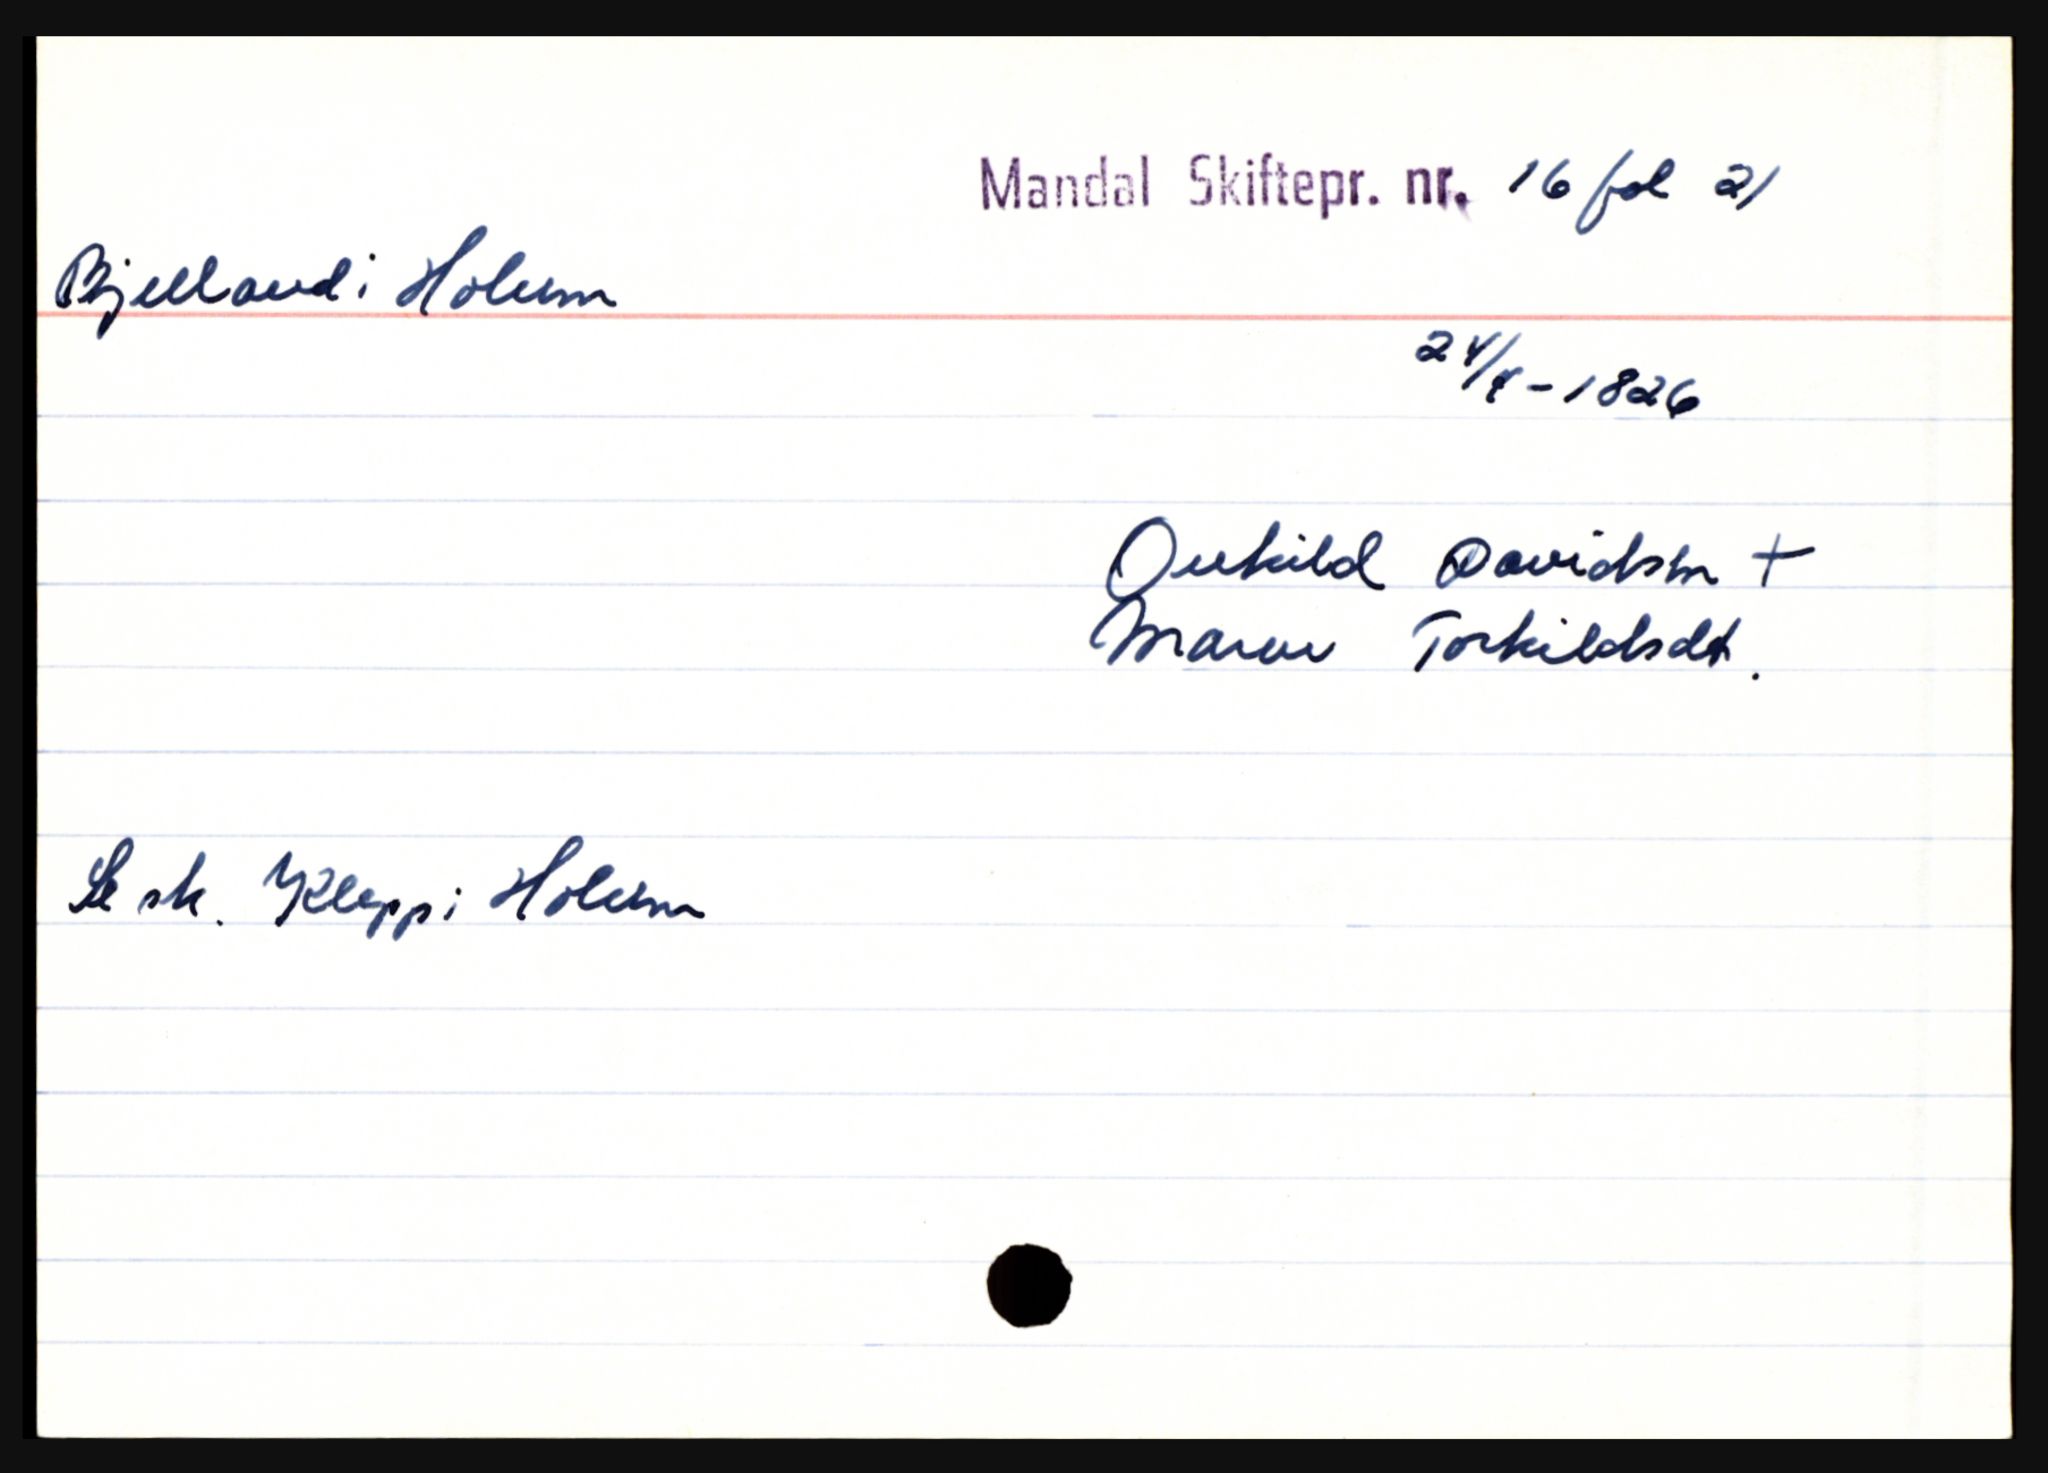 Mandal Skiftepr. nr. 16 fol 21
Bjelland i Holum
24/4-1826
Onkild Davidsen +
Maren Torkildsdt.
Se sk. Klepp i Holum